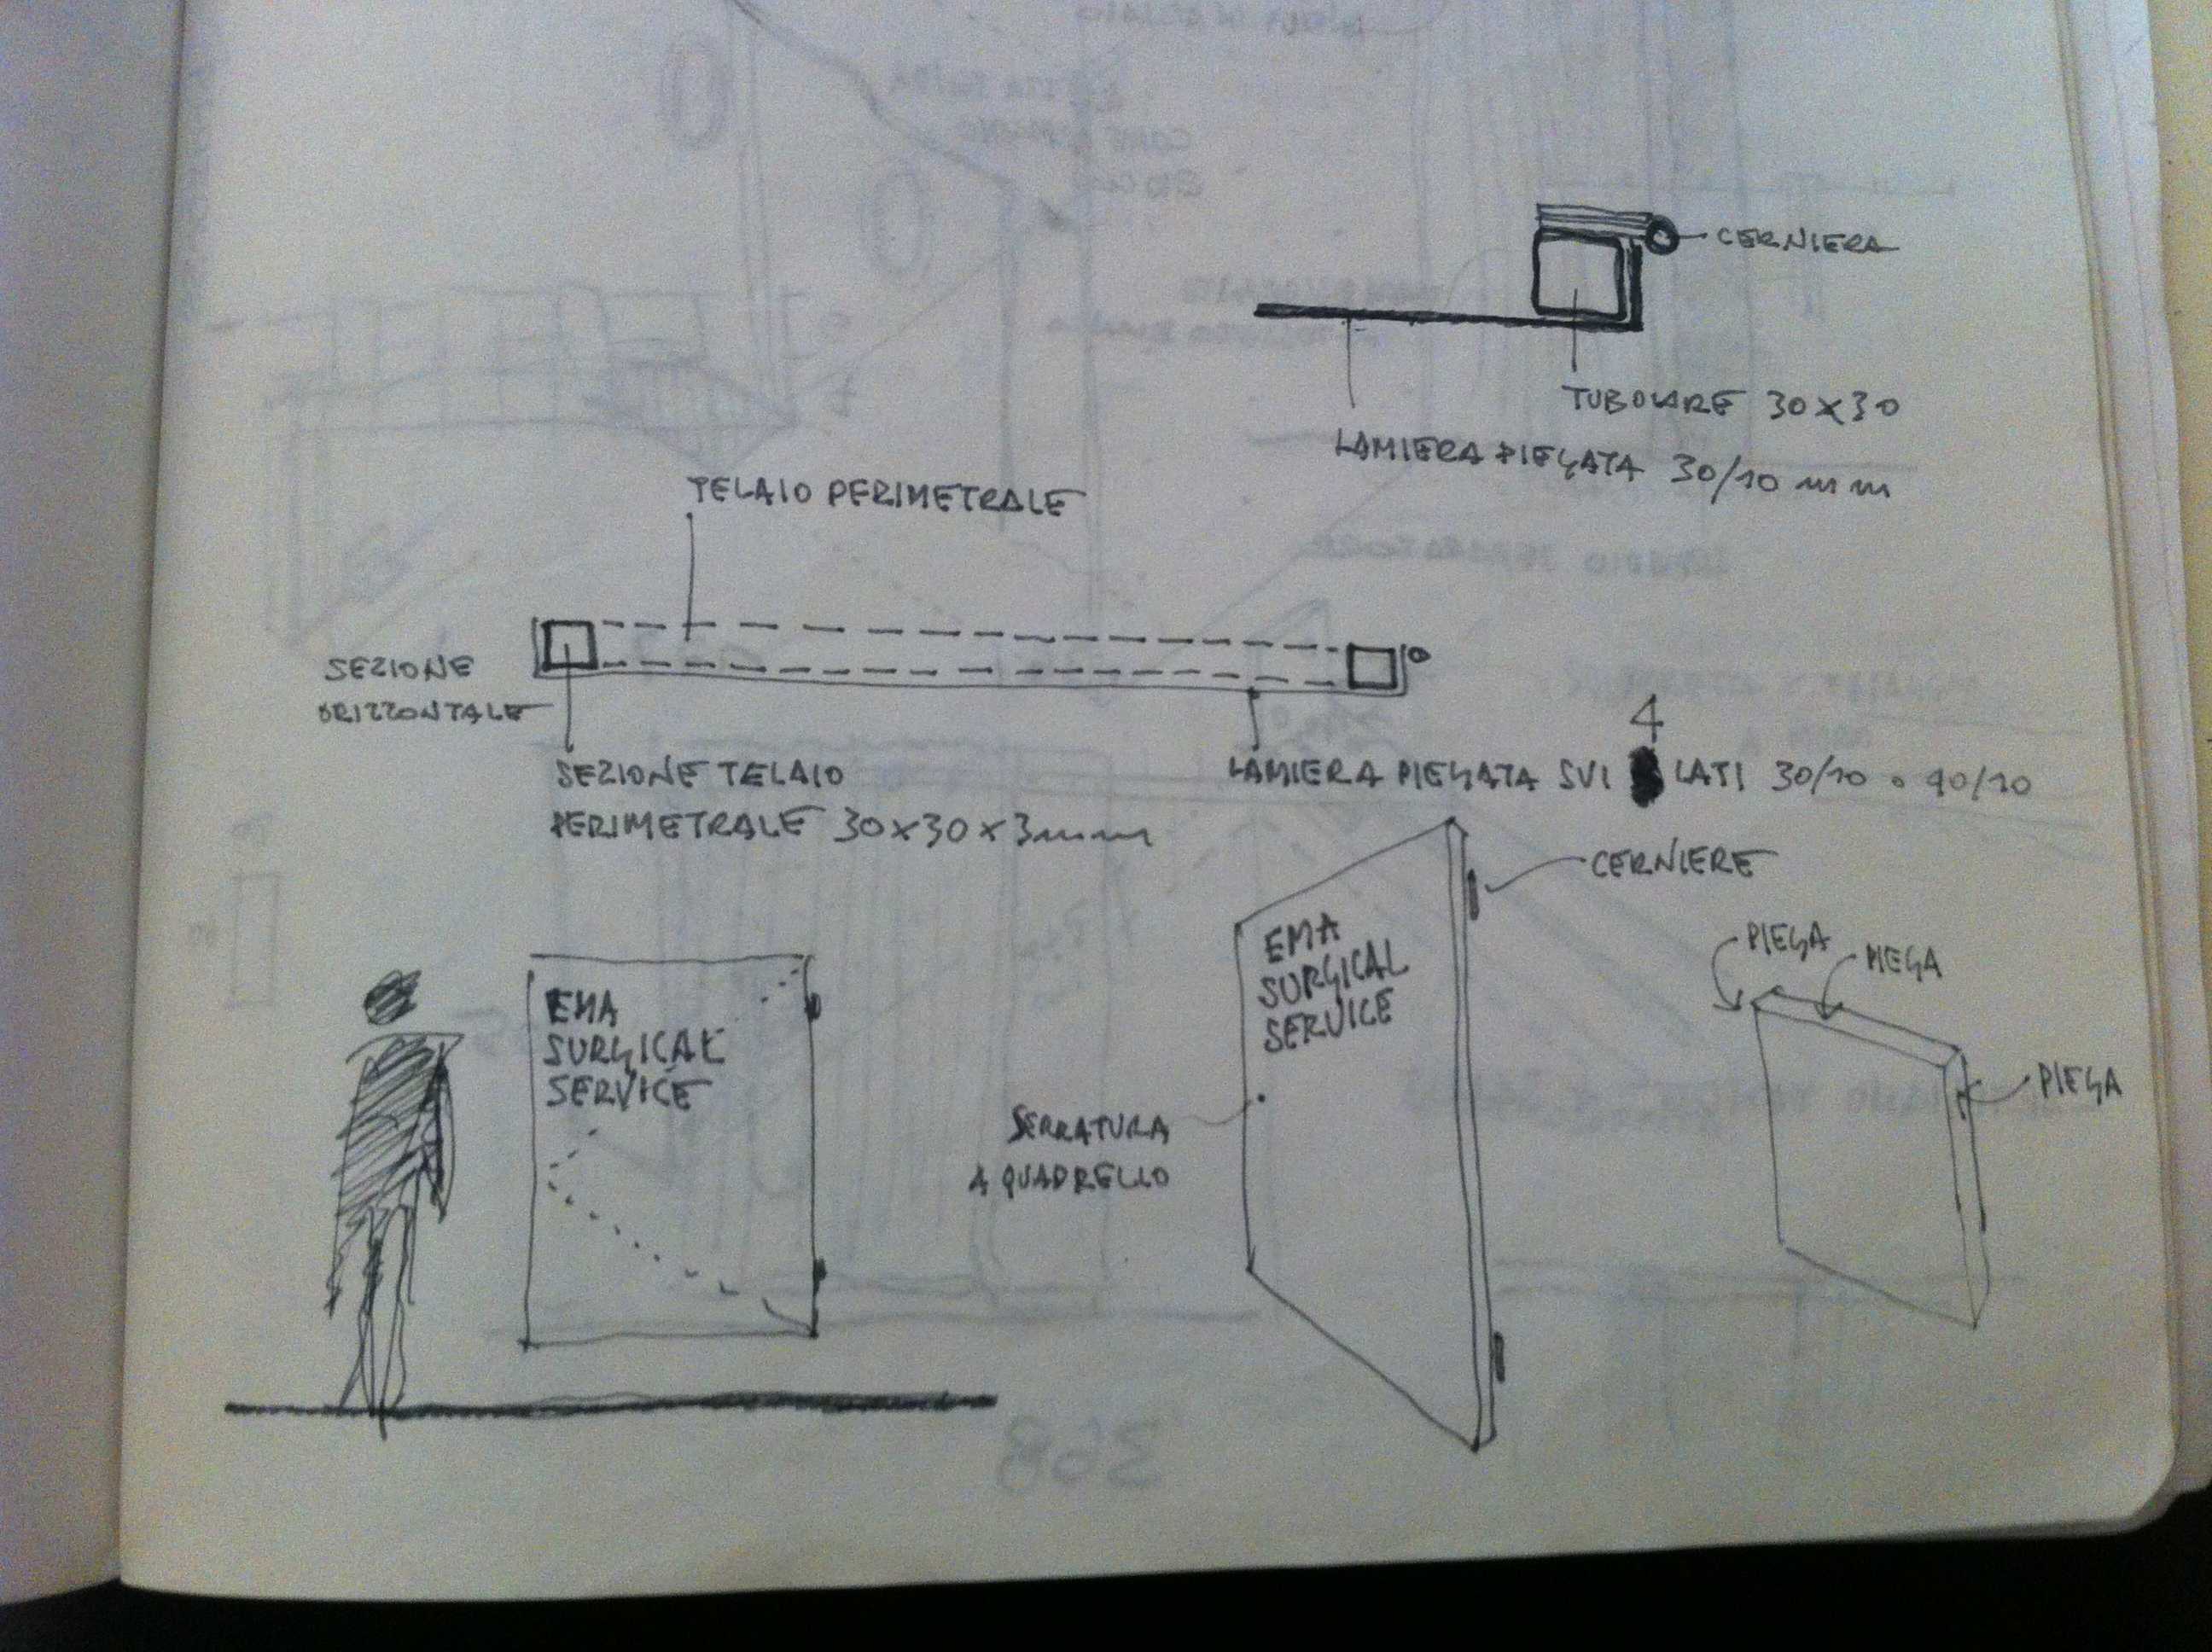 CERNIERA
TUBOLARE 30x30
LAMIERA PIEGATA 30/10 mm
TELAIO PERIMETRALE
SEZIONE
ORIZZONTALE
SEZIONE TELAIO
PERIMETRALE 30x30x3mm
4
LAMIERA PIEGATA SUI LATI 30/10 o 40/10
CERNIERE
EMA
SURGICAL
SERVICE
PIEGA
PIEGA
PIEGA
EMA
SURGICAL
SERVICE
SERRATURA
A QUADRELLO
368